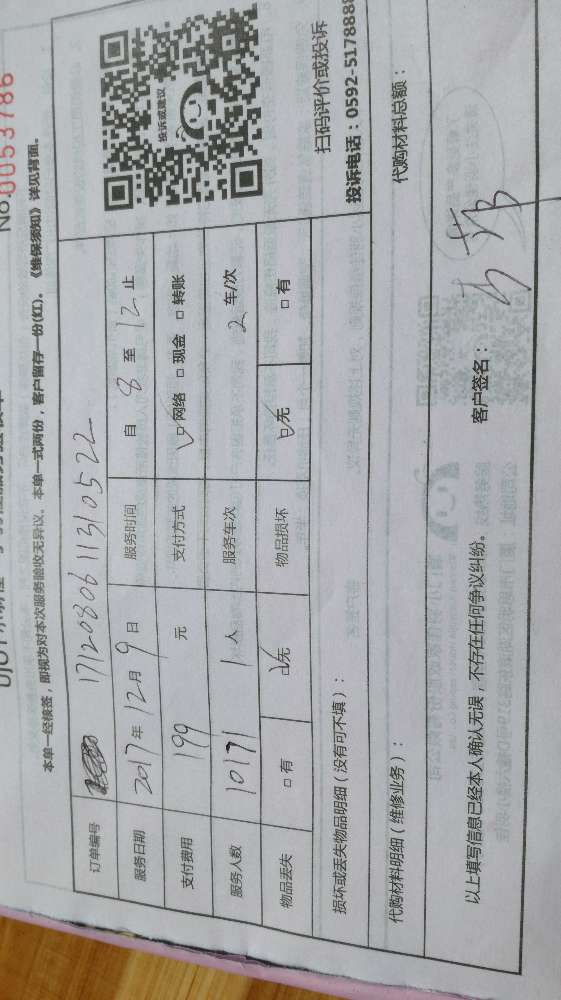 No.0053786
本单一经核签，即视为对本次服务验收无异议。本单一式两份，客户留存一份(红)。《维保须知》详见背面。
订单编号 171208061131 0522
服务日期 2017年12月9日 服务时间 自 8 至 12 止
支付费用 199 元 支付方式 ☑网络 □现金 □转账
服务人数 10171 1 人 服务车次 2 车/次
物品丢失 □有 ☑无 物品损坏 ☑无 □有
投诉或建议
扫码评价或投诉
投诉电话：0592-5178888
损坏或丢失物品明细（没有可不填）：
代购材料明细（维修业务）： 代购材料总额：
以上填写信息已经本人确认无误，不存在任何争议纠纷。 客户签名：